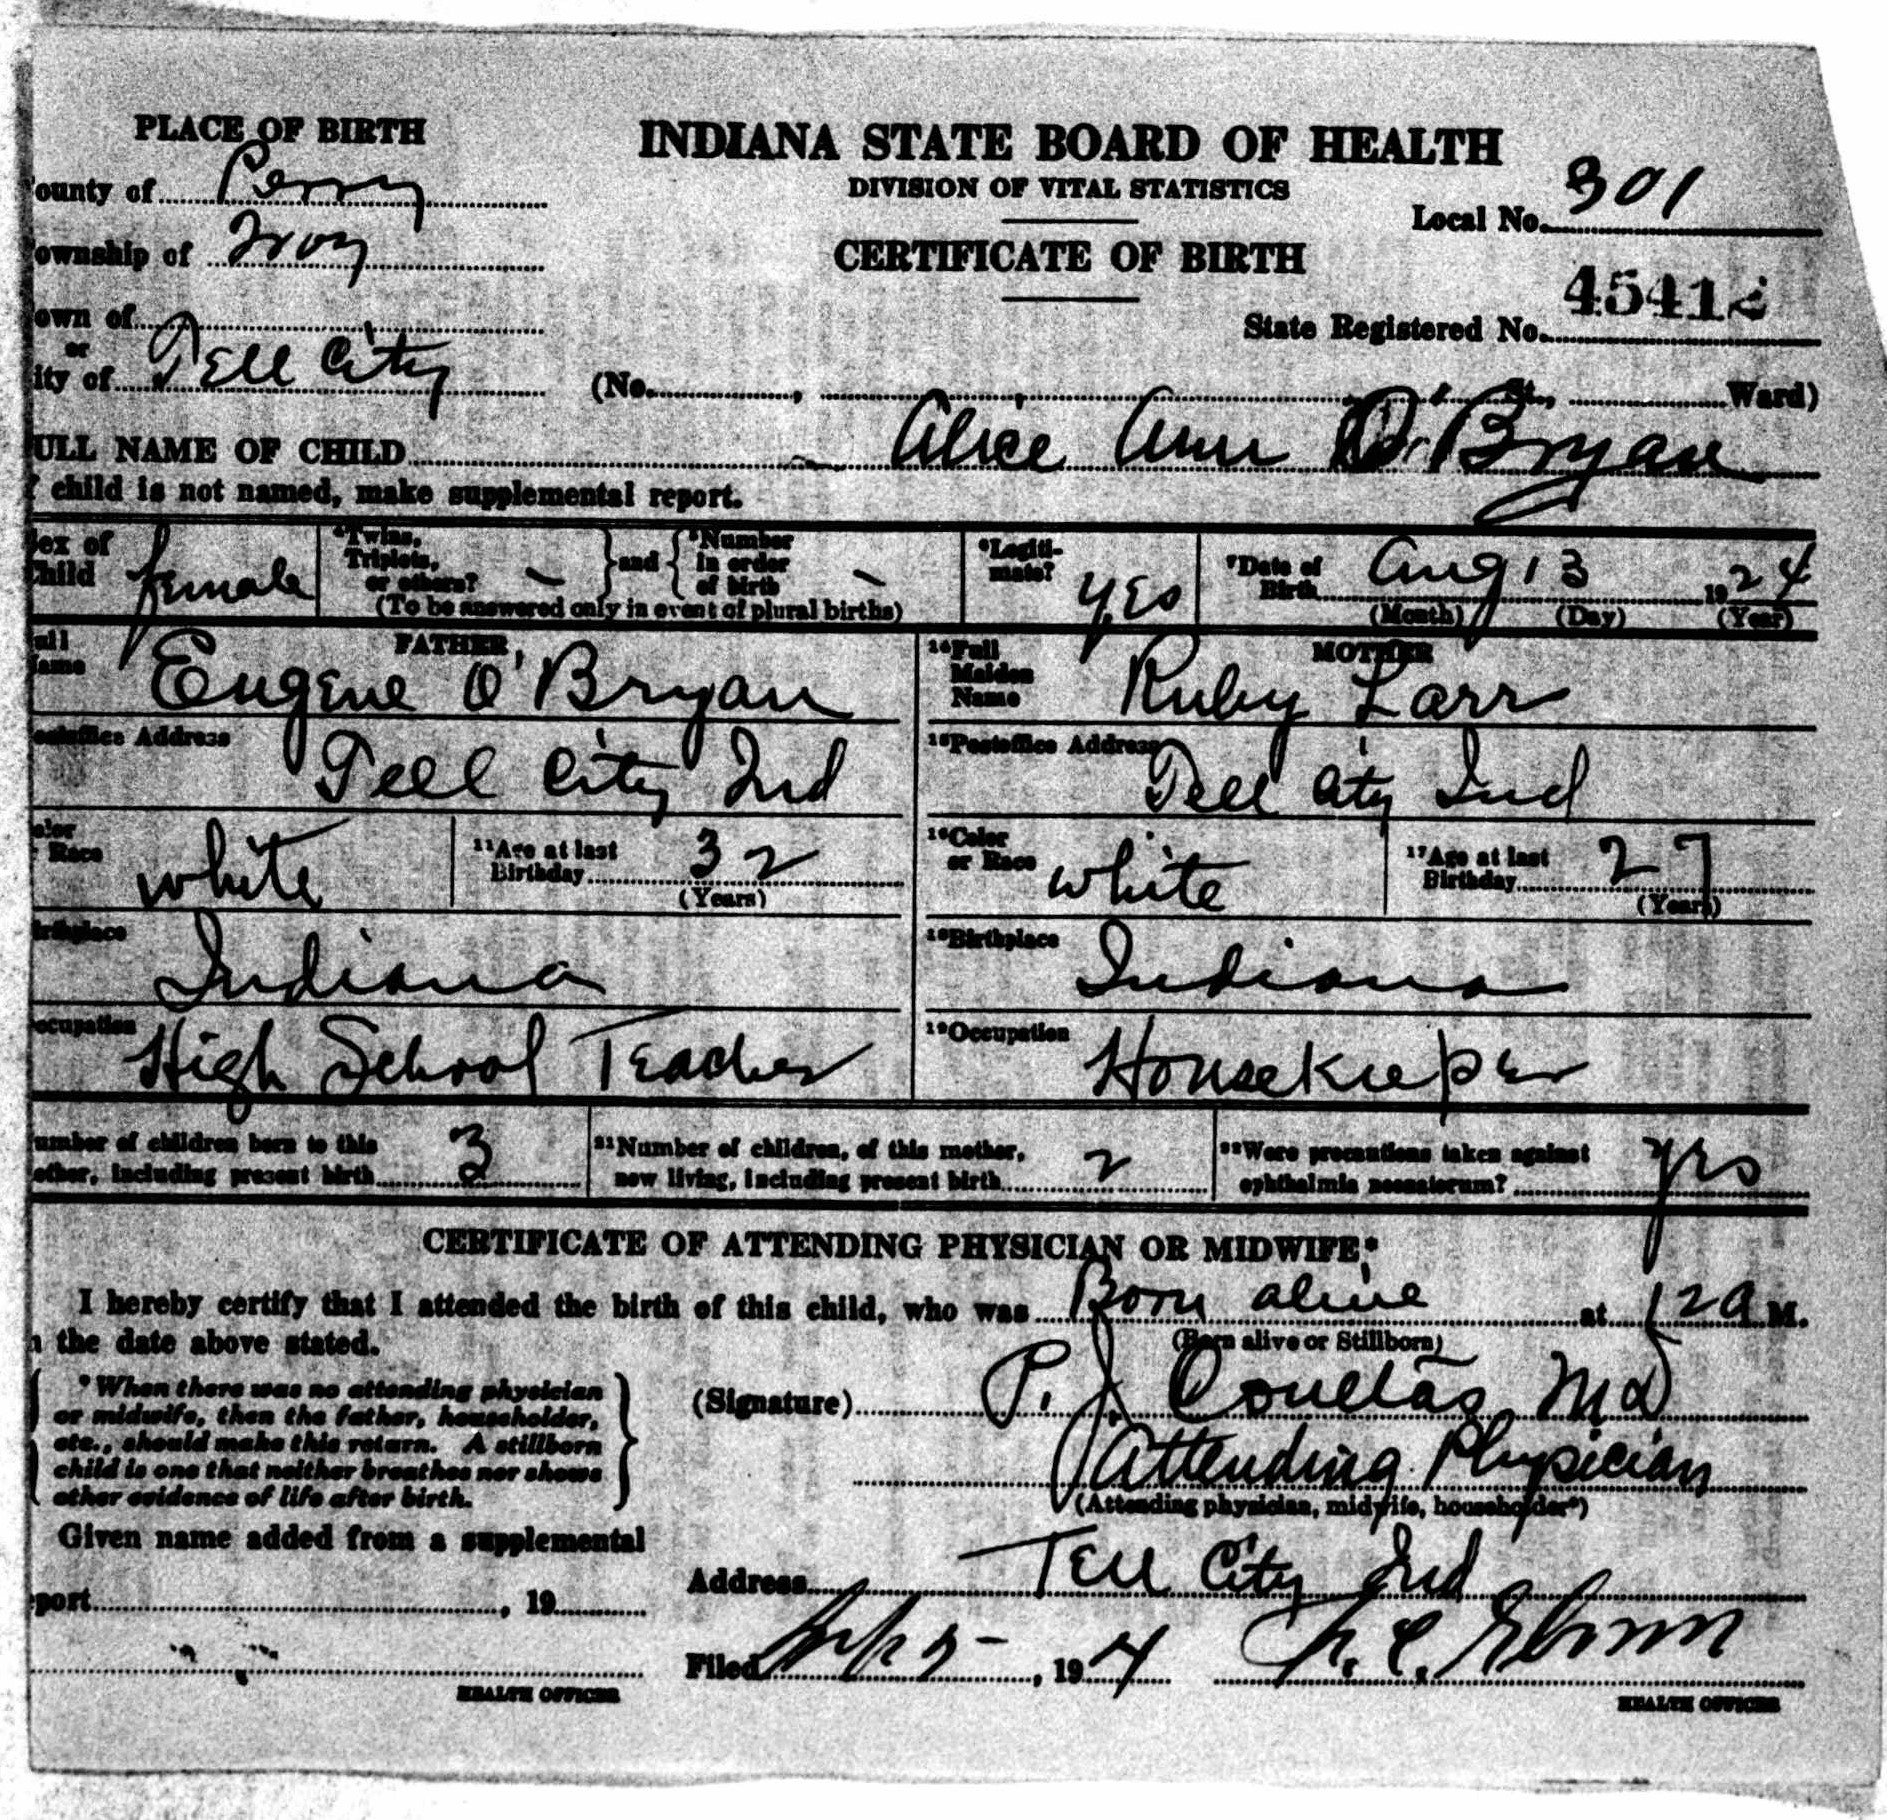 PLACE OF BIRTH
INDIANA STATE BOARD OF HEALTH
DIVISION OF VITAL STATISTICS
ounty of Perry
Local No. 301
ownship of Troy
CERTIFICATE OF BIRTH
45412
State Registered No.
own of
or
ity of Tell City
(No. , St., Ward)
ULL NAME OF CHILD Alice Ann O'Bryan
child is not named, make supplemental report.
Sex of Child female
Twins, Triplets, or others? – and Number in order of birth –
(To be answered only in event of plural births)
6Legitimate? yes
7Date of Birth Aug 13 1924
(Month) (Day) (Year)
FATHER
ull Name Eugene O'Bryan
MOTHER
14Full Maiden Name Ruby Larr
ostoffice Address Tell City Ind
15Postoffice Address Tell City Ind
olor Race white
11Age at last Birthday 32
(Years)
16Color or Race white
17Age at last Birthday 27
(Years)
irthplace Indiana
18Birthplace Indiana
ccupation High School Teacher
19Occupation Housekeeper
umber of children born to this
other, including present birth 3
21Number of children, of this mother,
now living, including present birth 2
22Were precautions taken against
ophthalmia neonatorum? yes
CERTIFICATE OF ATTENDING PHYSICIAN OR MIDWIFE*
I hereby certify that I attended the birth of this child, who was Born alive at 12 a M.
(Born alive or Stillborn)
n the date above stated.
*When there was no attending physician
or midwife, then the father, householder,
etc., should make this return. A stillborn
child is one that neither breathes nor shows
other evidence of life after birth.
(Signature) P. J. Coultas MD
Attending Physician
(Attending physician, midwife, householder*)
Given name added from a supplemental
port , 19
Address Tell City Ind
Filed Sep 5 – , 19 4
HEALTH OFFICER
HEALTH OFFICER